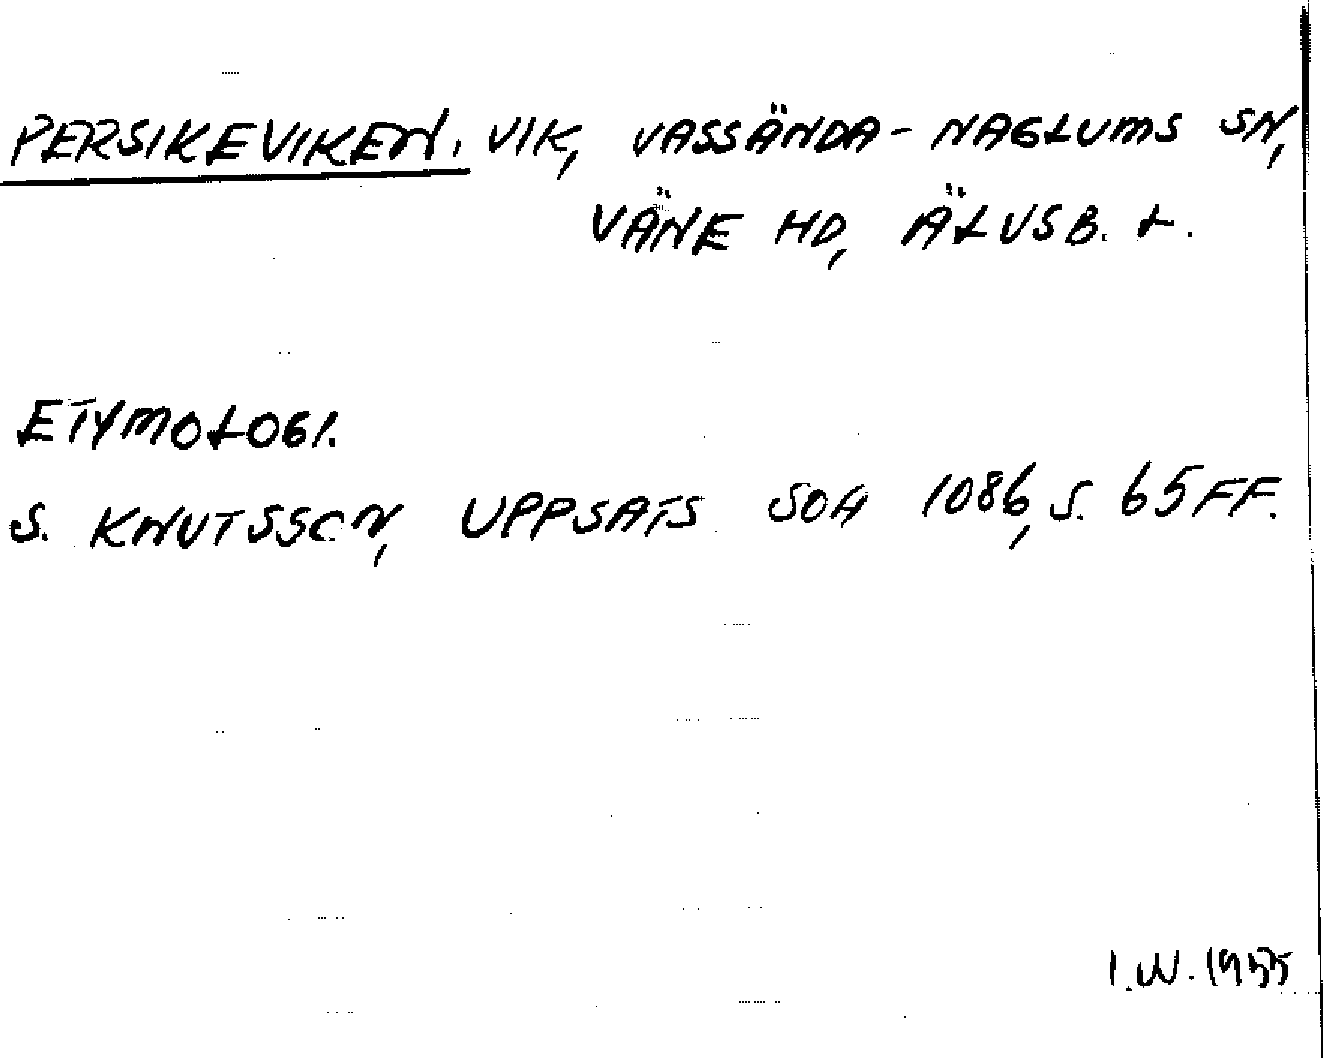 PERSIKEVIKEN. VIK, VASSÄNDA-NAGLUMS SN,
VÄNE HD, ÄLVSB. L.
ETYMOLOGI.
S. KNUTSSON, UPPSATS SOA 1086, S. 65FF.
I.W. 1955